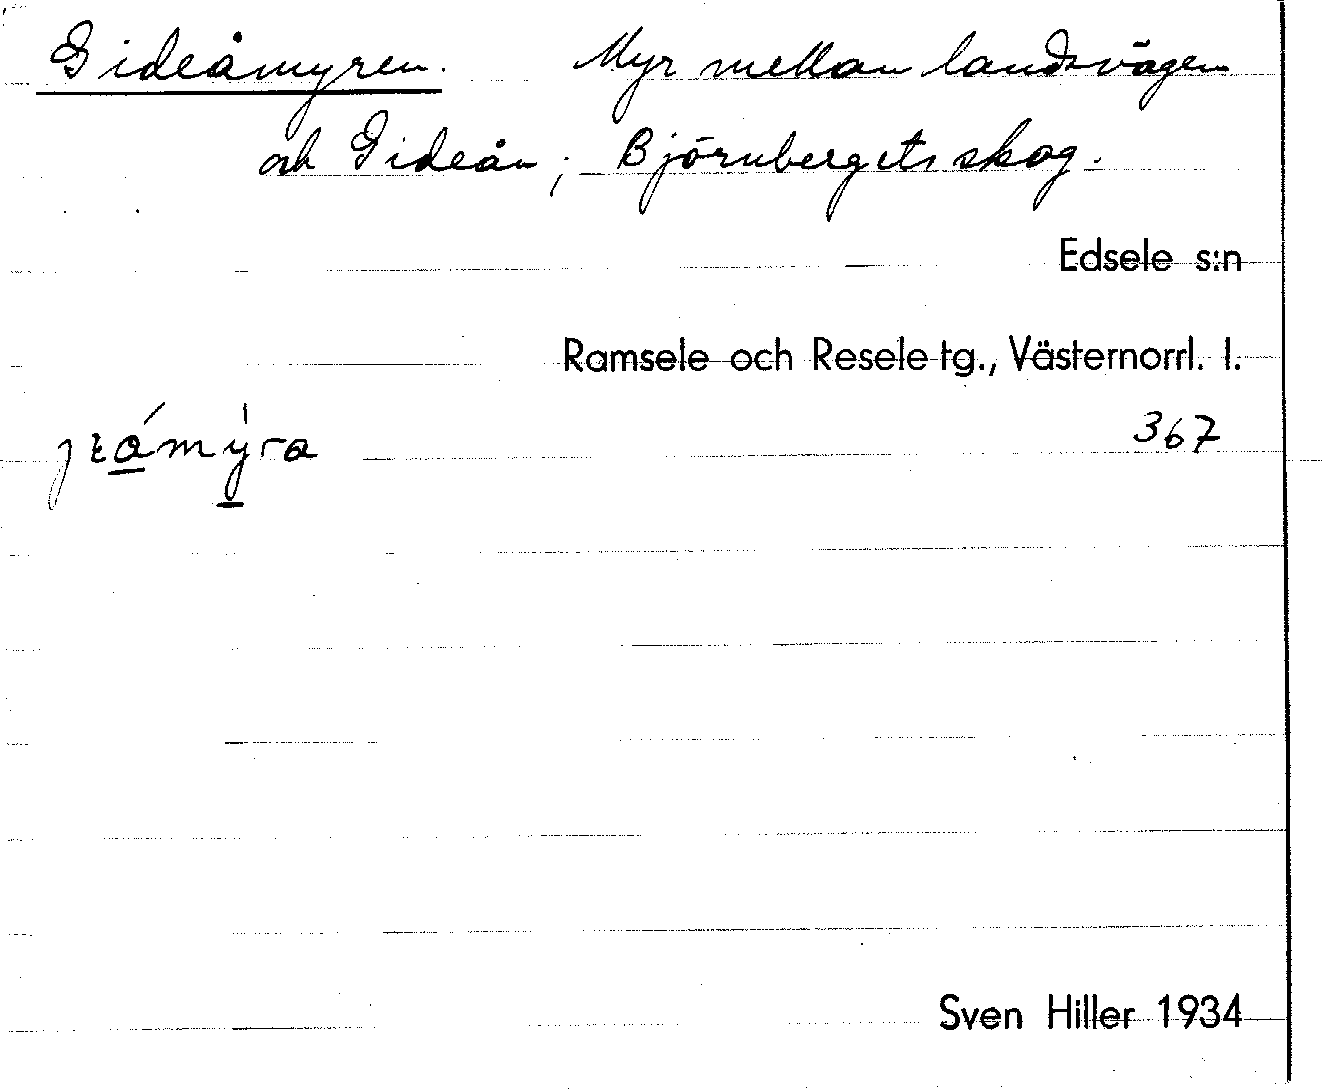 Gideåmyren. Myr mellan landsvägen
och Gideån; Björnbergets skog.
Edsele s:n
Ramsele och Resele tg., Västernorrl. l.
367
Sven Hiller 1934